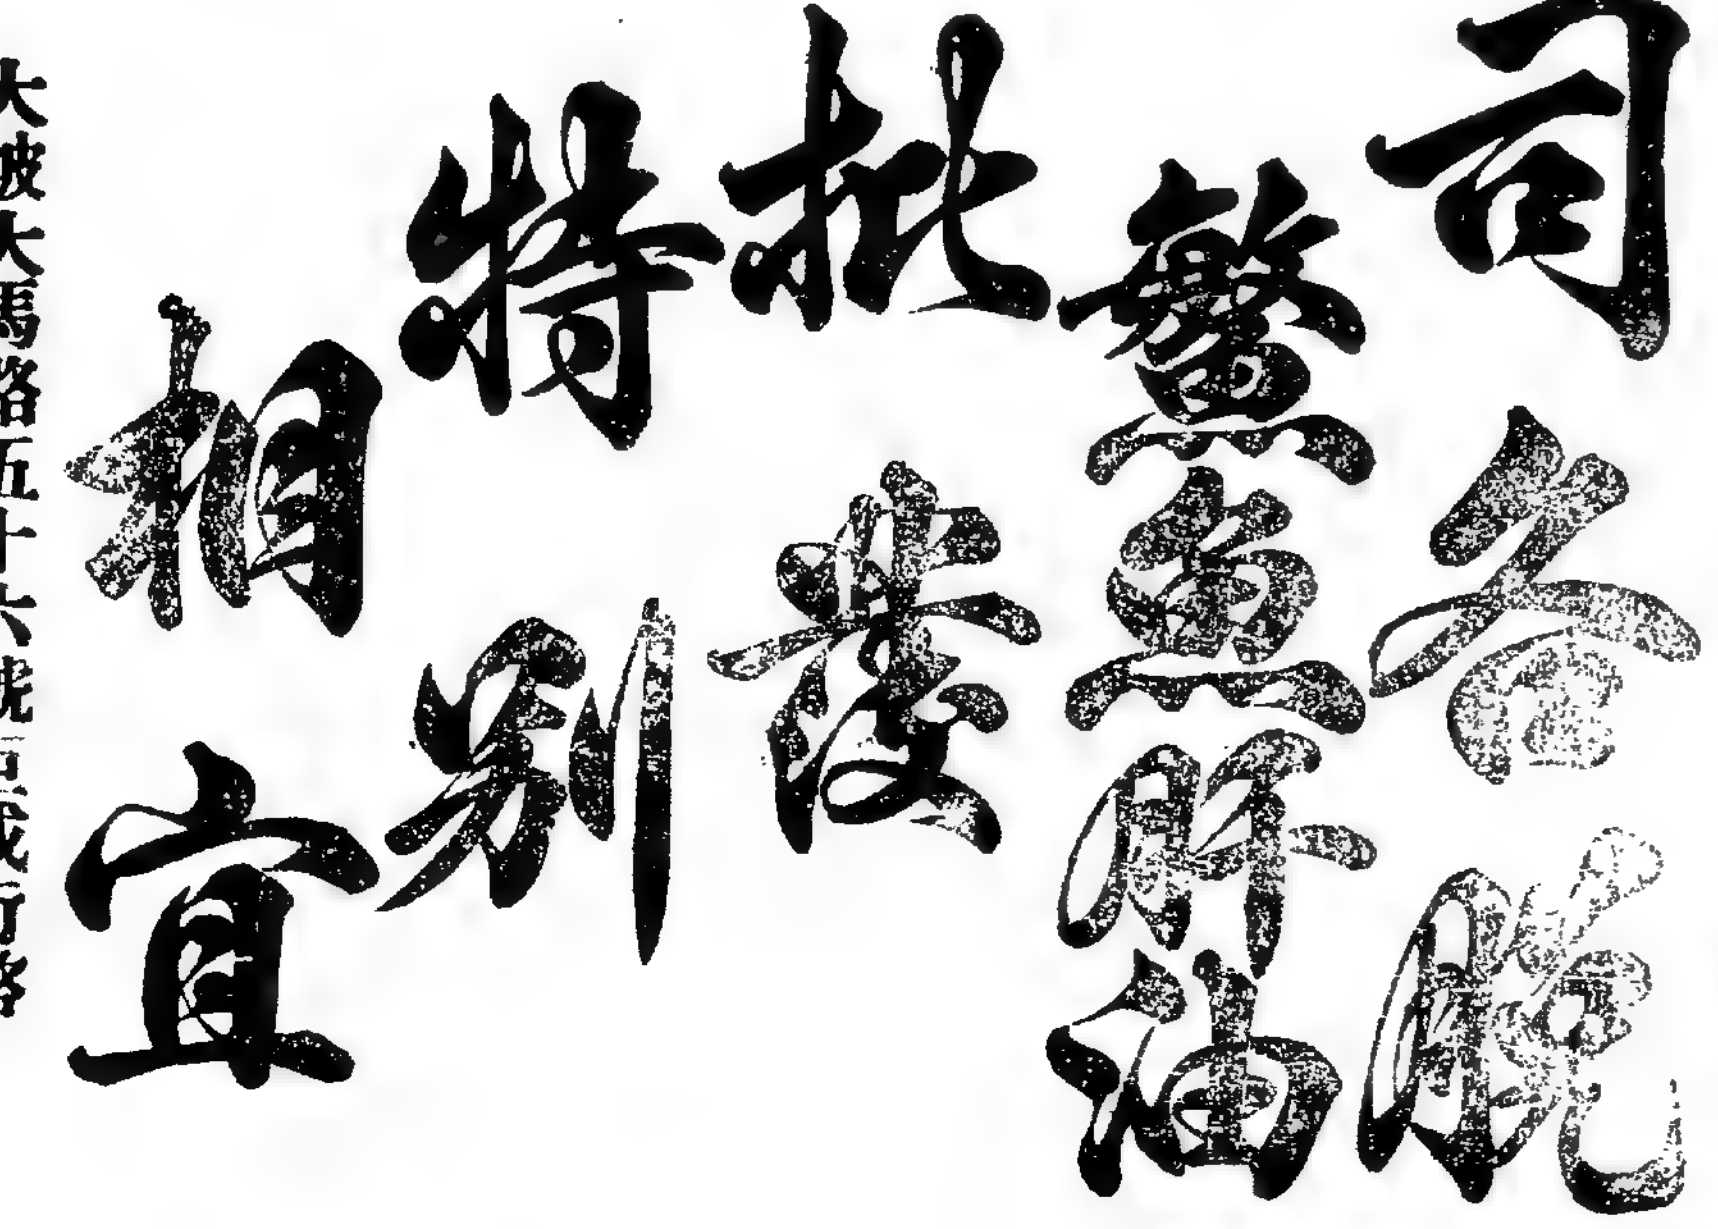 司各脫
鰵魚肝油
批發
特別
相宜
大坡大馬路五十六號